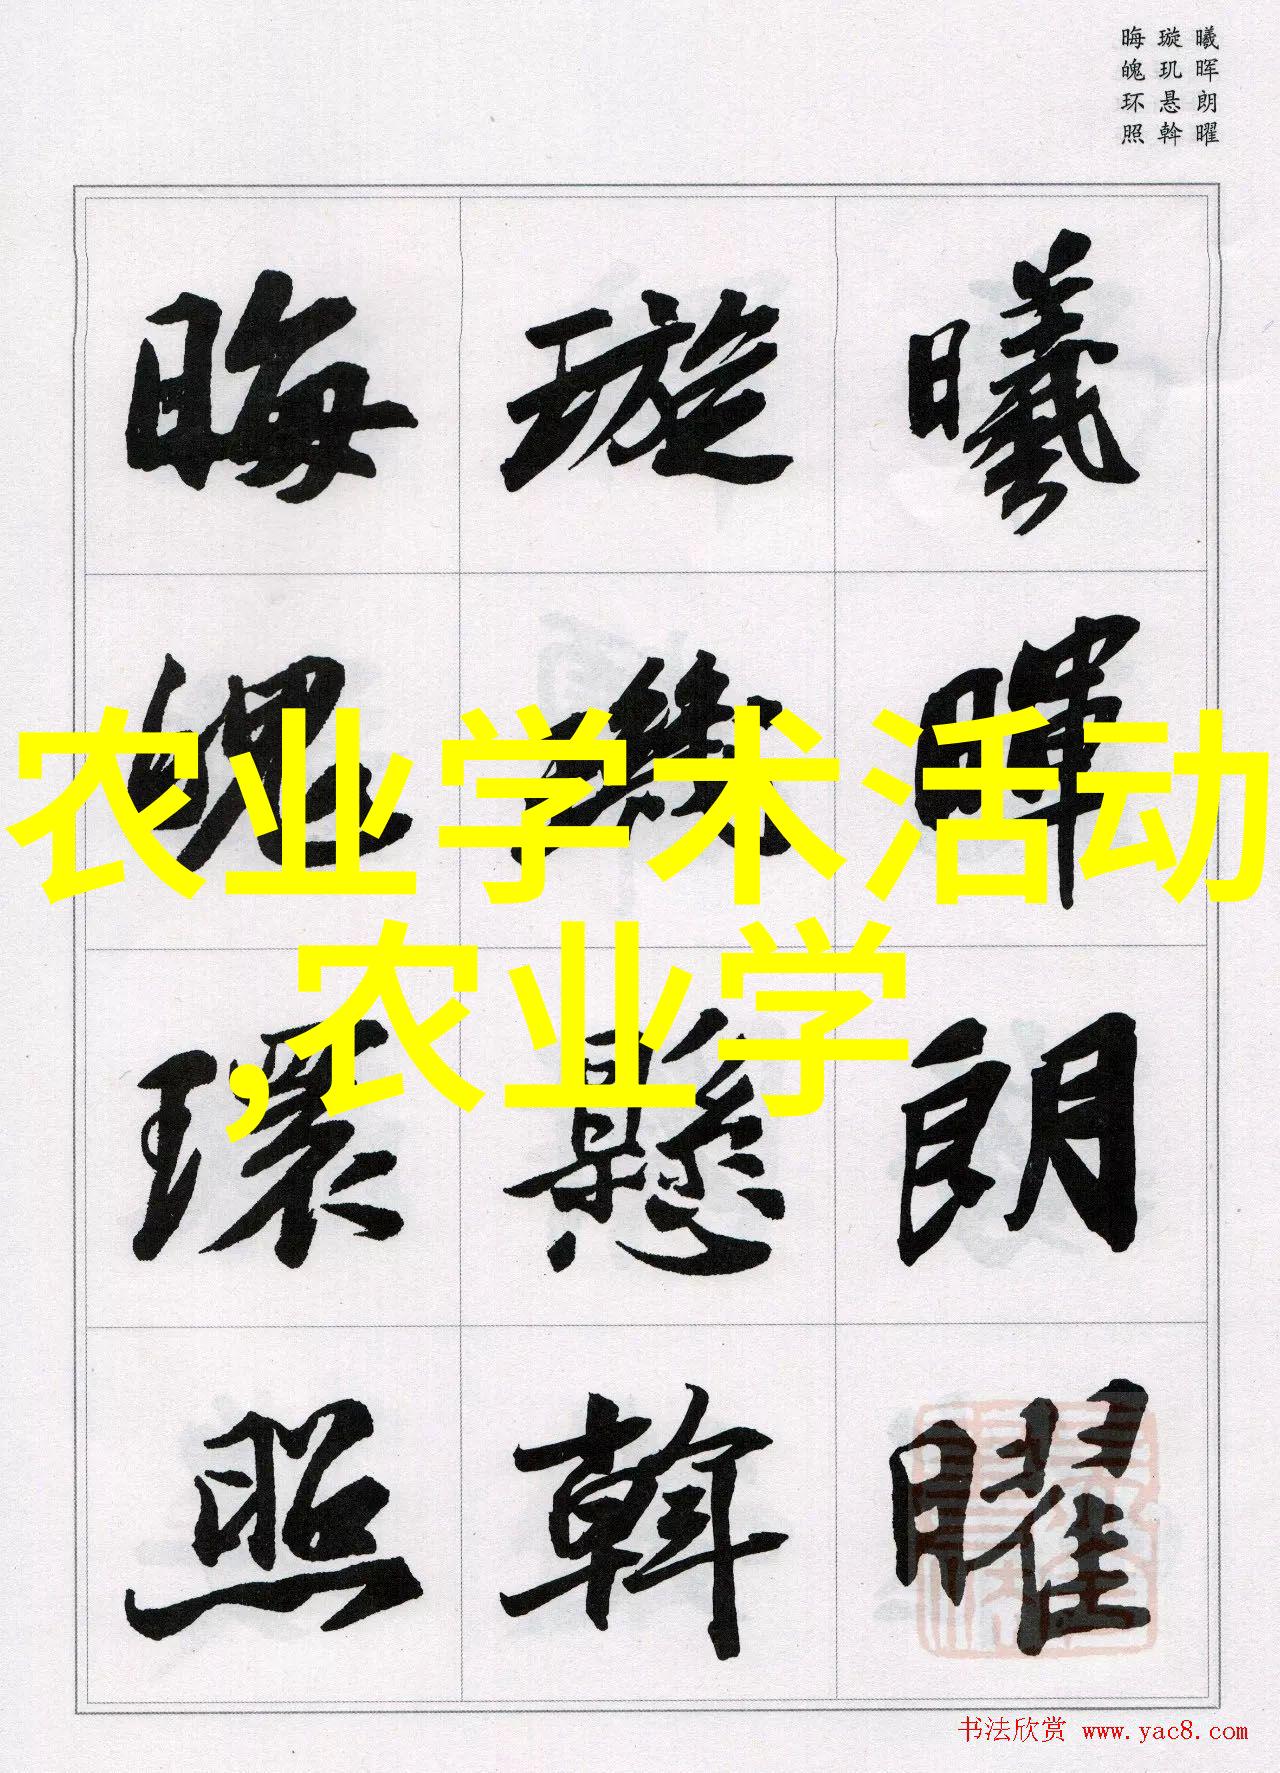 曦晖朗曜
璇玑悬斡
晦魄环照
曦暉朗曜
璇璣懸斡
晦魄環照
农业学术活动
,农业学
书法欣赏 www.yac8.com